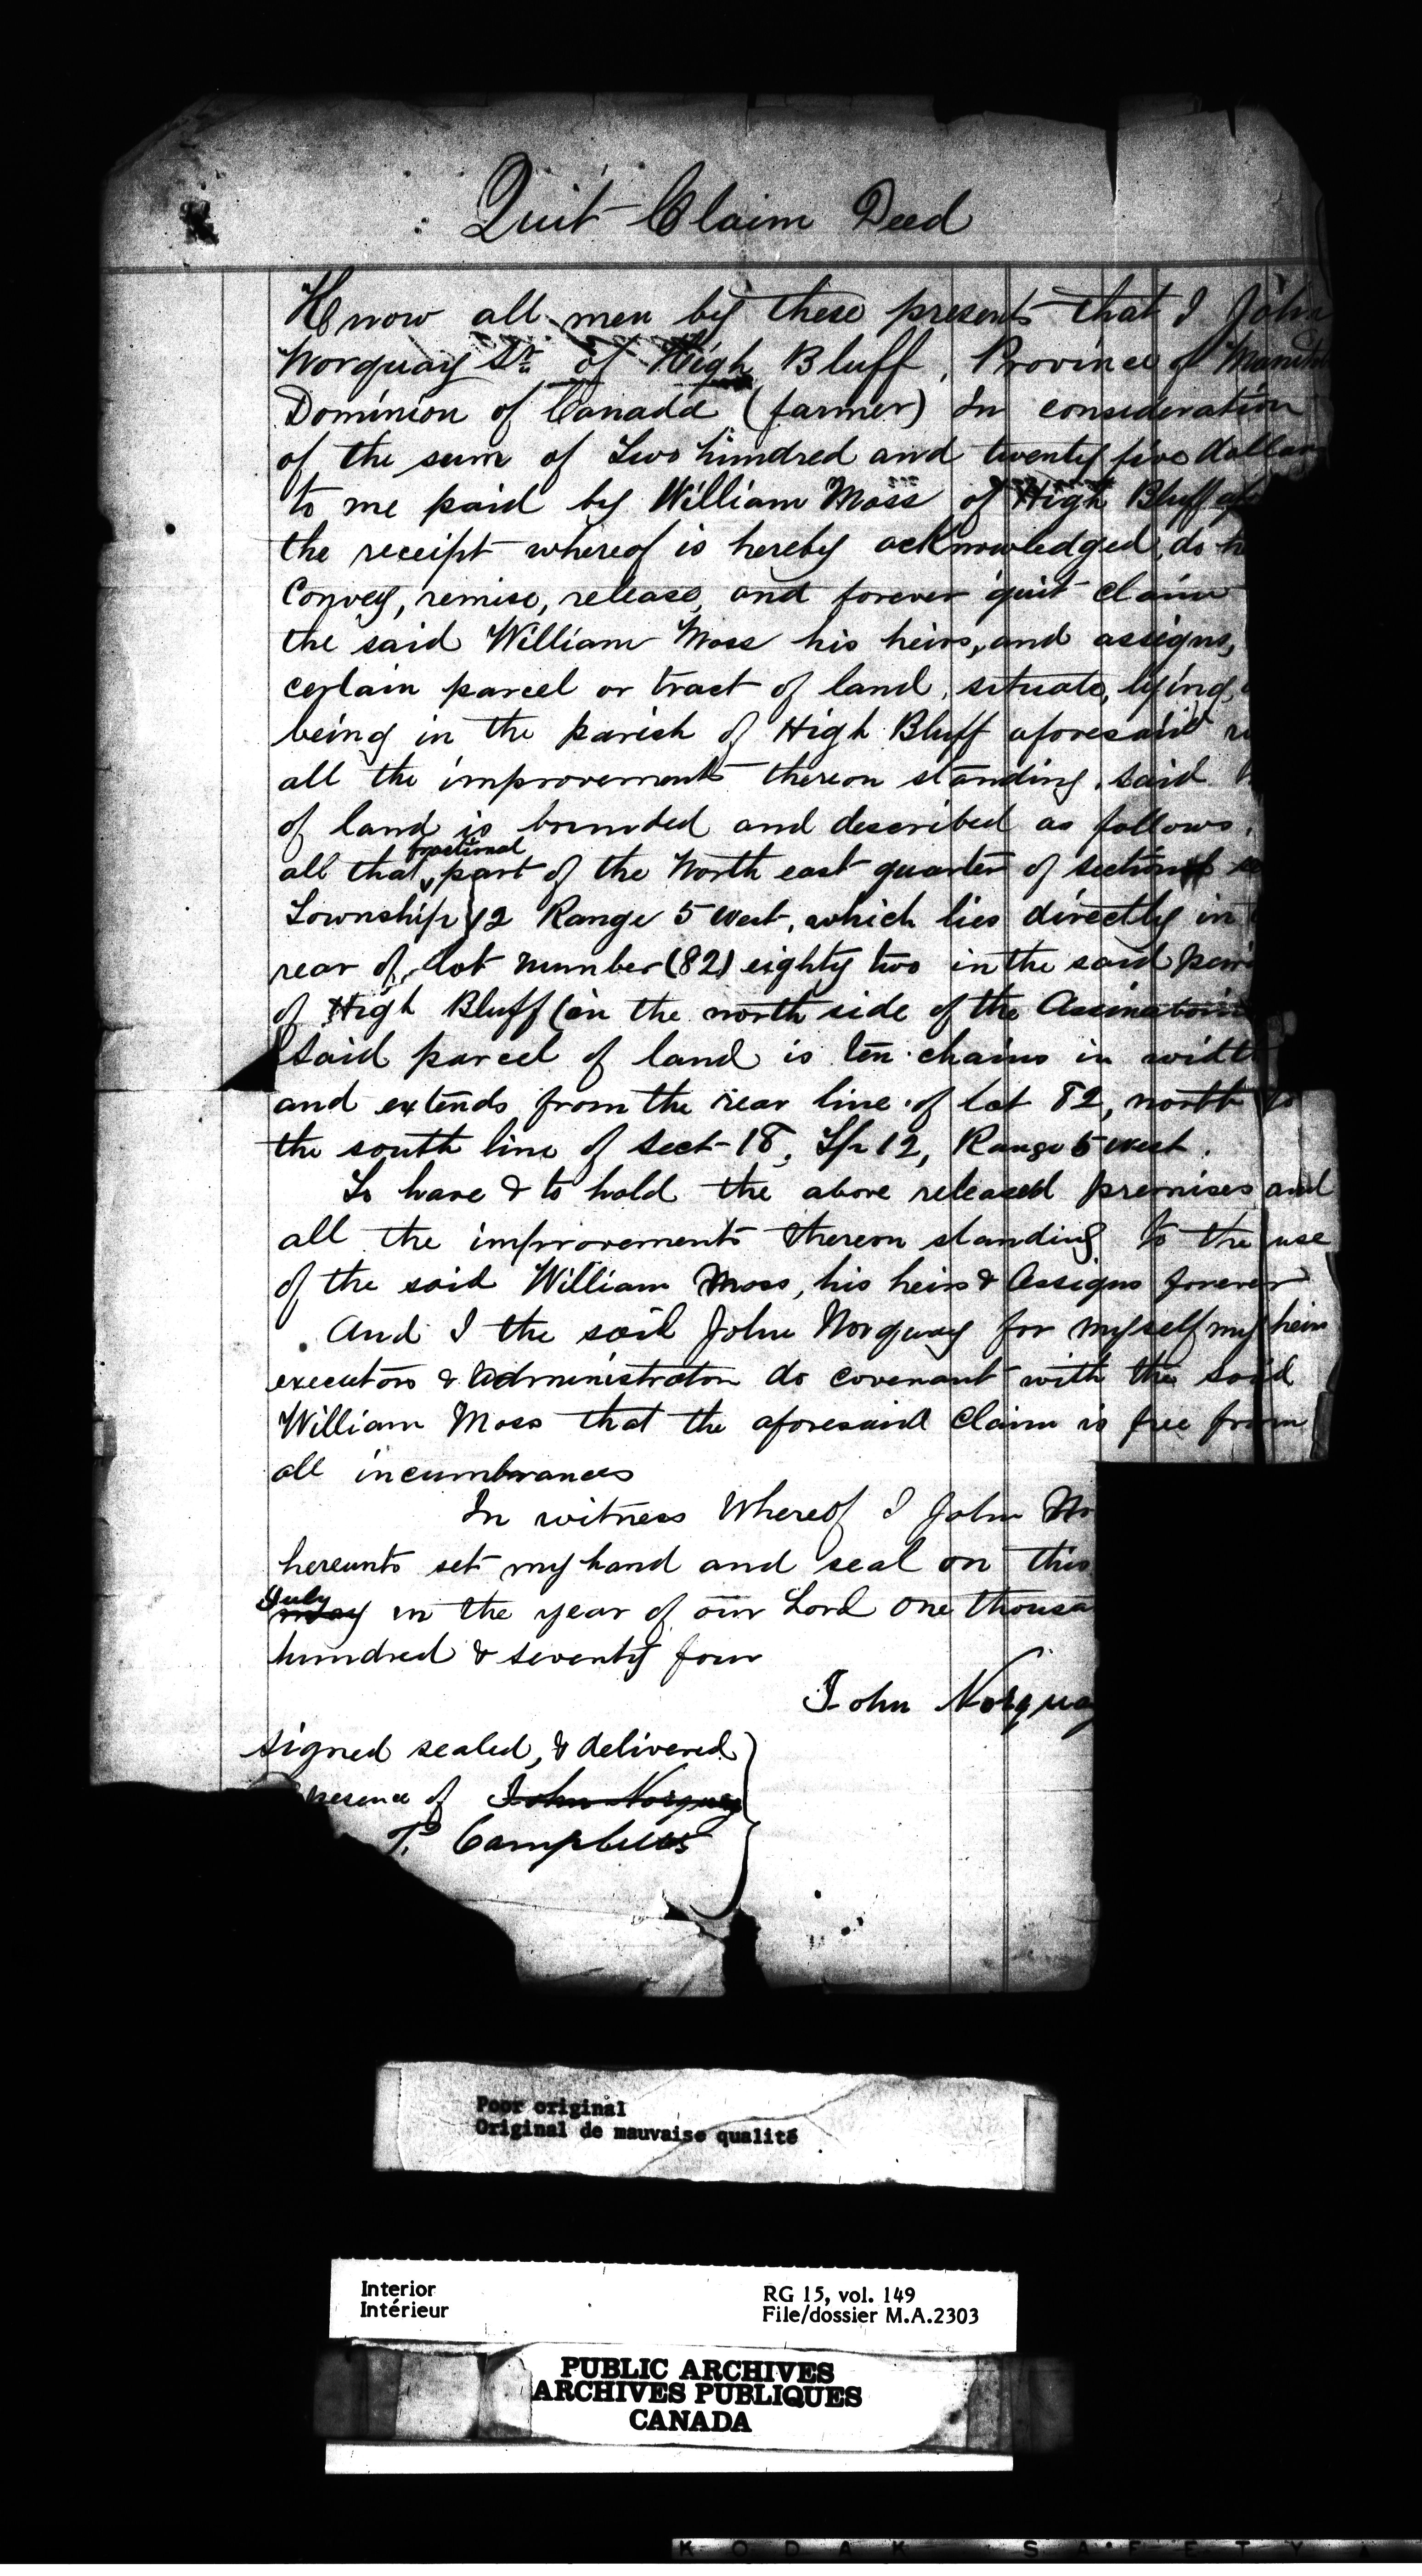 Quit Claim Deed
Know all men by these presents that I John
Norquay Sr. of High Bluff, Province of Manito
Dominion of Canada (farmer) In consideration
of the sum of Two hundred and twenty five dollars
to me paid by William Moss of High Bluff
the receipt whereof is hereby acknowledged, do he
Convey, remise, release, and forever quit claim
the said William Moss his heirs, and assigns,
certain parcel or tract of land, situate, lying,
being in the parish of High Bluff aforesaid
all the improvements thereon standing, said
of land is bounded and described as follows,
all that fractional part of the North east quarter of section
Township 12 Range 5 West, which lies directly in
rear of lot number (82) eighty two in the said pari
of High Bluff (on the north side of the Assinaboin
Said parcel of land is ten chains in width
and extends from the rear line of lot 82, north to
the south line of Sect 18, Tp 12, Range 5 West.
To have & to hold the above released premises and
all the improvements thereon standing to the use
of the said William Moss, his heirs & Assigns forever
And I the said John Norquay for myself my heirs
executors & Administrators do covenant with the said
William Moss that the aforesaid Claim is free from
all incumbrances
In witness Whereof I John No
hereunto set my hand and seal on this
July
May in the year of our Lord One thousa
hundred & seventy four
John Norquay
Signed sealed, & delivered
presence of John Norquay
T. Campbell
Poor original
Original de mauvaise qualité
Interior
Intérieur
RG 15, vol. 149
File/dossier M.A.2303
PUBLIC ARCHIVES
ARCHIVES PUBLIQUES
CANADA
KODAK SAFETY